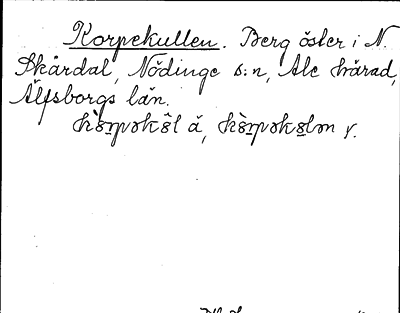 Korpekullen. Berg öster i N.
Skårdal, Nödinge s:n, Ale härad,
Älfsborgs län.